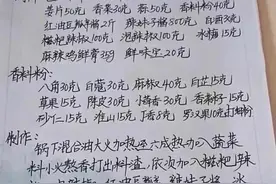 姜片50克 香菜30克 香葱50克 香料粉40克
红油豆瓣2斤 辣妹子酱800克 白酒30克
糍粑辣椒100克 泡辣椒100克 冰糖15克
麻辣鸡鲜膏35g 鲜味宝20克
香料粉:
八角30克 白蔻30克 麻椒40克 白芷15克
草果15克 陈皮30克 小茴香30克 香果籽15克
砂仁15克 淮山15克 丁香5克
制作:
锅下混合油大火加热至六成热动入蔬菜
料小火熬香打出料渣,依次加入糍粑辣